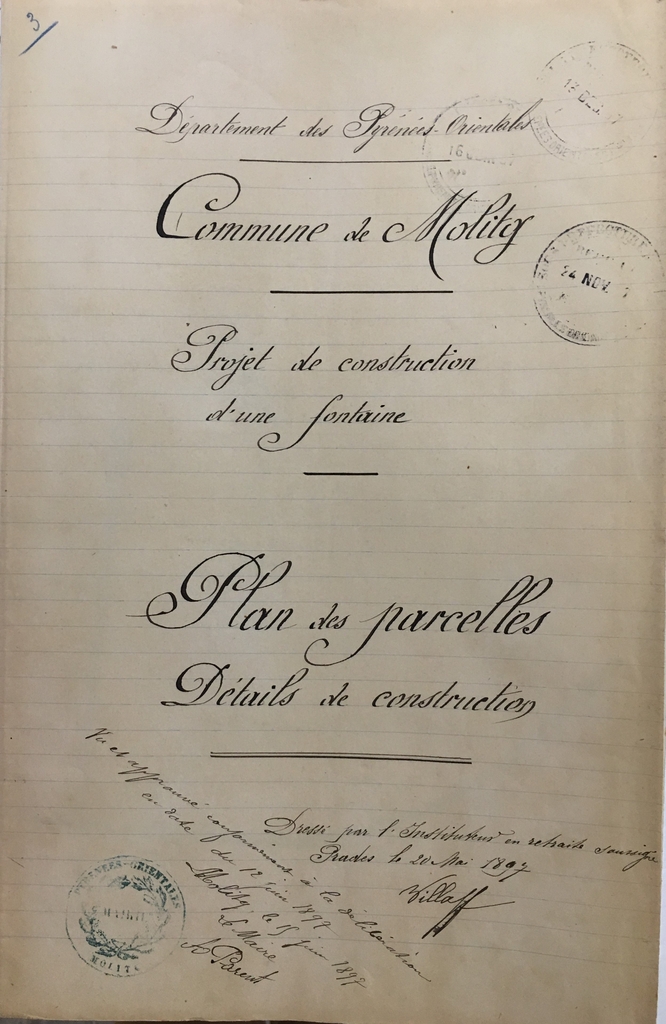 3
Département des Pyrénées-Orientales
Commune de Molitg
Projet de construction
d'une fontaine
Plan des parcelles
Détails de construction
Dressé par l'Instituteur en retraite soussigné
Prades le 20 Mai 1897
Villa
Vu et approuvé conformément à la délibération
en date du 12 juin 1897
Molitg le 15 juin 1897
Le Maire
A Parent
24 NOV.
PYRÉNÉES-ORIENTALES
MAIRIE
MOLITG